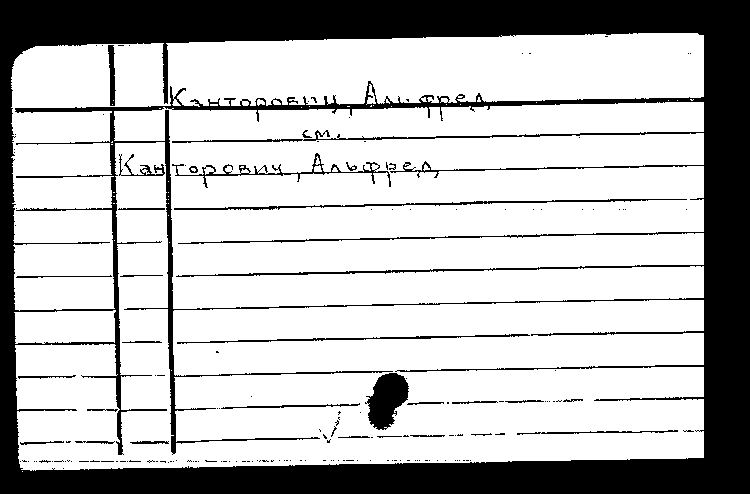 Канторовиц, Альфред
см.
Канторович, Альфред